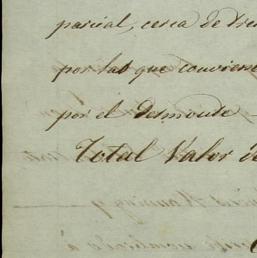 parcial, cerca de tre
por tab que conviene
por el desmonte
Total Valor de